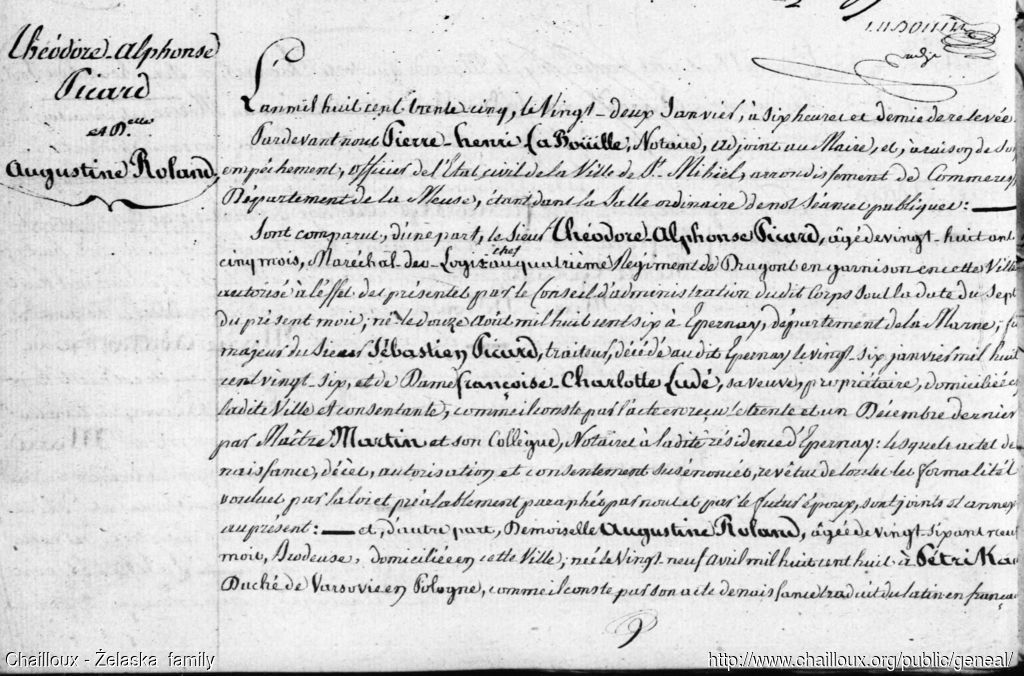 Théodore-Alphonse
Picard
et D.elle
Augustine Roland,
L'an mil huit cent trente cinq, le Vingt-deux Janvier, à six heures et demie de relevée
Pardevant nous Pierre-henri La Boüille, Notaire, adjoint au Maire, et, à raison de son
empéchement, officier de l'Etat civil de la Ville de St. Mihiel, arrondissement de Commercy,
Département de la Meuse, étant dans la Salle ordinaire de nos séances publiques:
Sont comparus, d'une part, le Sieur Théodore-Alphonse Picard, âgé de vingt-huit ans
cinq mois, Maréchal-des-Logis chef au quatrième Régiment de Dragons en garnison en cette Ville
autorisé à l'effet des présentes par le Conseil d'administration dudit Corps sous la date du Sept
du présent mois; né le douze Août mil huit cent six à Epernay, département de la Marne; fils
majeur du Sieur Sébastien Picard, traiteur, décédé audit Epernay le vingt-six janvier mil huit
cent vingt-six, et de Dame françoise-Charlotte Ludé, sa veuve, propriétaire, domiciliée en
ladite Ville et consentante, comme il conste par l'acte en reçu le trente et un Décembre dernier
par Maître Martin et son Collègue, Notaires à ladite résidence d'Epernay: lesquels actes de
naissance, décès, autorisation et consentement susénoncés, revêtus de toutes les formalités
voulues par la loi et préalablement paraphés par nous et par le futur époux, sont joints et annexés
au présent: et, d'autre part, Demoiselle Augustine Roland, âgée de vingt-six ans neuf
mois, Brodeuse, domiciliée en cette Ville; née le Vingt neuf avril mil huit cent huit à Pétri Kau
Duché de Varsovie en Pologne, comme il conste par son acte de naissance traduit du latin en français
Chailloux - Żelaska family
http://www.chailloux.org/public/geneal/